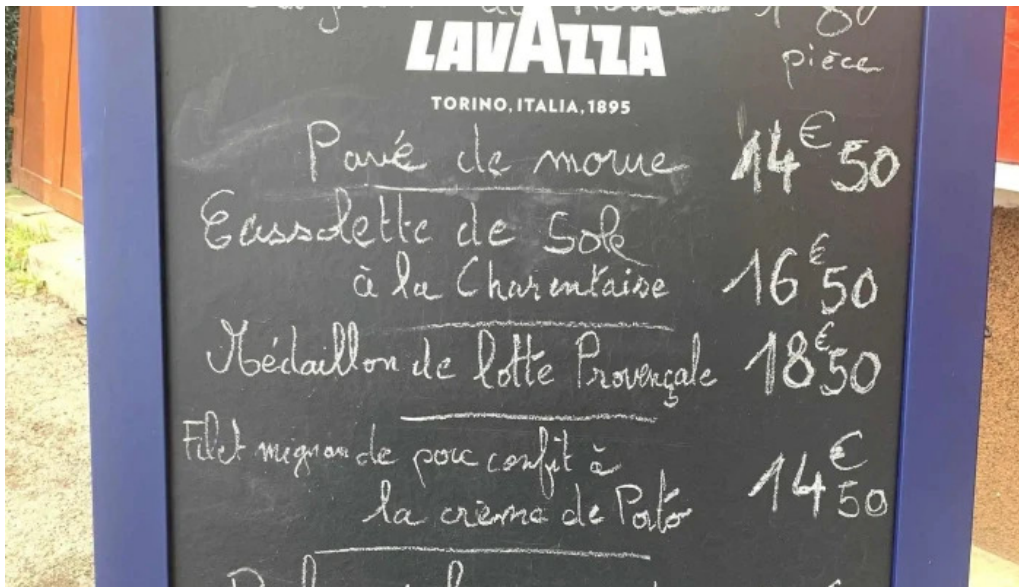 LAVAZZA
pièce
TORINO, ITALIA, 1895
Pavé de morue 14€50
Cassolette de Sole
à la Charentaise 16€50
Médaillon de lotte Provençale 18€50
Filet mignon de porc confit à
la crème de Porto 14€50